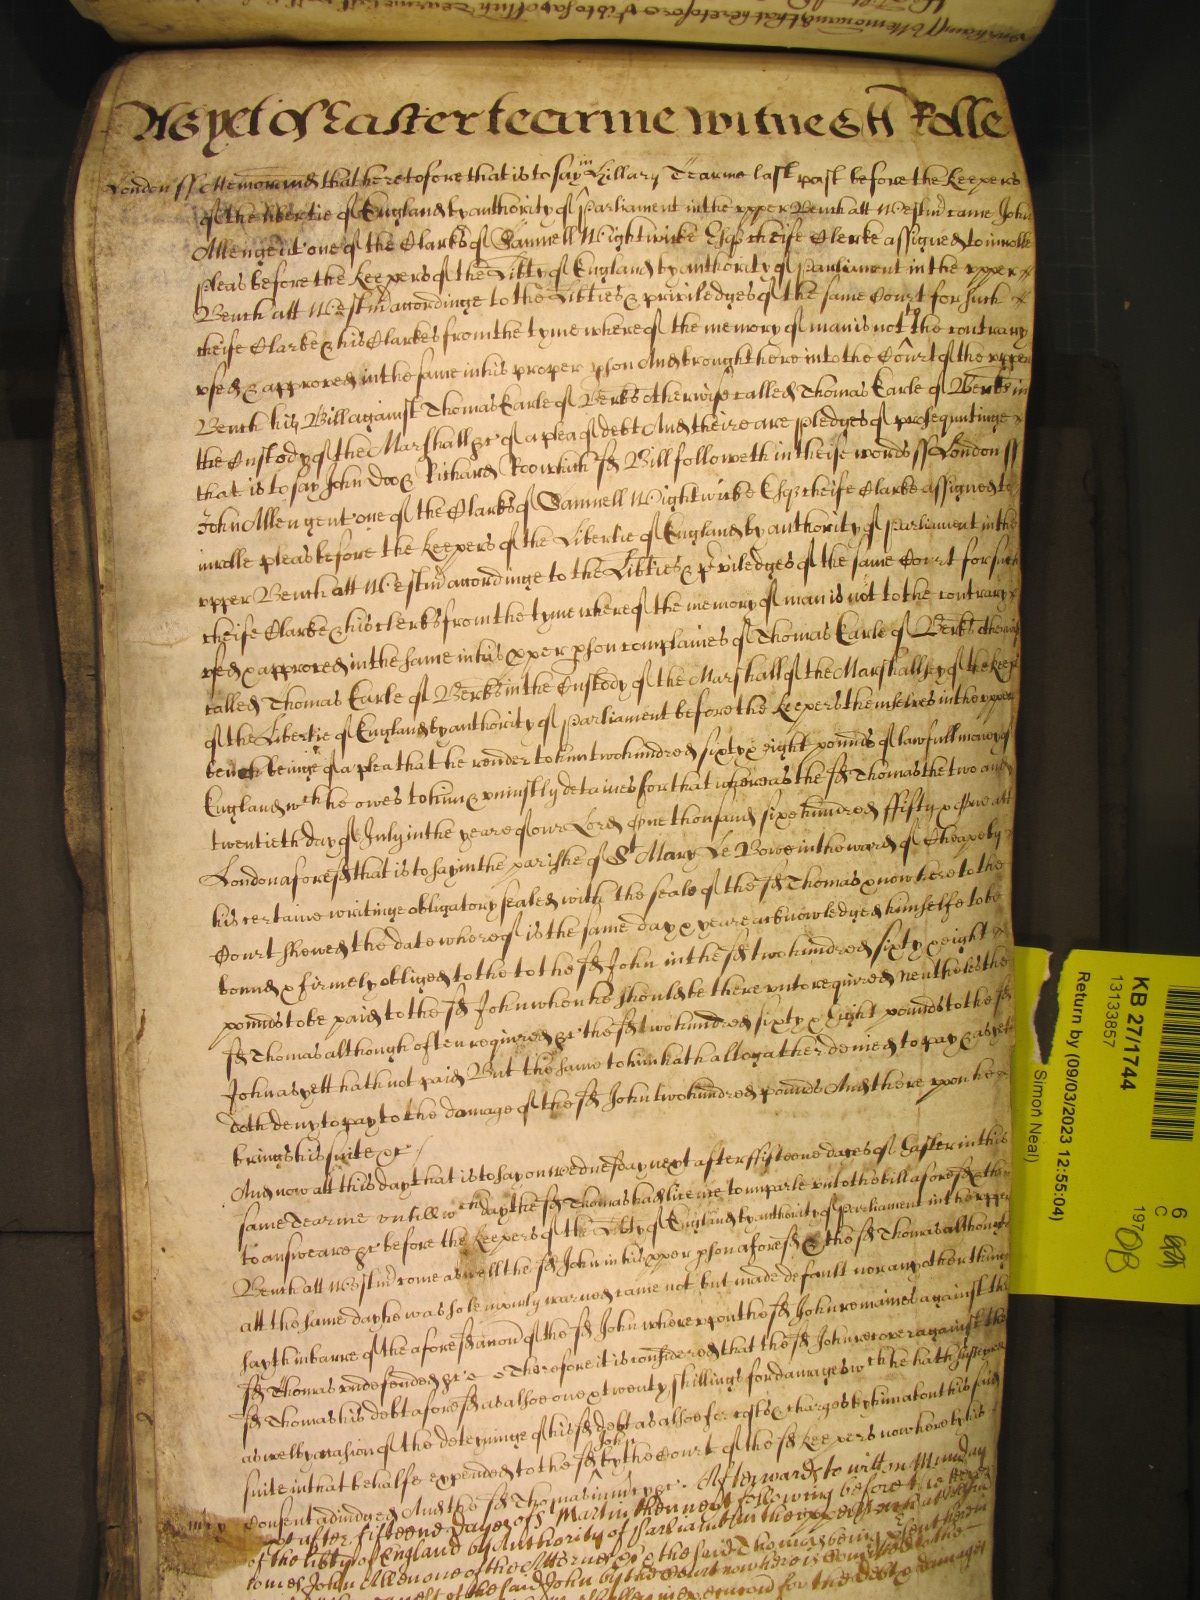 As yet of Easter tearme witnes H Rolle
London ss Memorand that heretofore that is to say in Hillary Tearme last past before the Keepers
of the libertie of England by authority of Parliament in the upper Bench att Westmr came John
Allen gent one of the Clarks of Samuell Wightwicke Esqr cheife Clerke assigned to inrolle
pleas before the Keepers of the Libty of England by authority of Parliament in the upper
Bench att Westmr accordinge to the Libties & priviledges of the same Court for such
cheife Clarke & his Clarkes from the tyme whereof the memory of man is not to the contrary
used & approved in the same in his proper pson And brought here into the Court of the upper
Bench his Bill against Thomas Earle of Berks otherwise called Thomas Earle of Berks in
the Custody of the Marshall &c of a plea of debt And theire are pledges of prosequutinge
that is to say John Doo & Richard Roo which sd Bill followeth in theise words ss London ss
John Allen gent one of the Clarks of Samuell Wightwicke Esqr cheife Clarke assigned to
inrolle pleas before the Keepers of the Libertie of England by authority of Parliament in the
upper Bench att Westmr accordinge to the Libties & priviledges of the same Court for such
cheife Clarke & his clerks from the tyme whereof the memory of man is not to the contrary
used & approved in the same in his pper pson complaines of Thomas Earle of Berks otherwise
called Thomas Earle of Berks in the Custody of the Marshall of the Marshallsey of the Keeps
of the Libertie of England by authority of Parliament before the Keepers themselves in the upper
bench beinge of a plea that he render to him two hundred sixty & eight pounds of lawfull money of
England wch he owes to him & uniustly detaines for that whereas the sd Thomas the two and
twentieth day of July in the yeare of our Lord One thousand sixe hundred ffifty & One att
London aforesd that is to say in the parishe of St Mary Le Bowe in the ward of Cheape by
his certaine writinge obligatory sealed with the seale of the sd Thomas & now here to the
Court shewed the date whereof is the same day & yeare acknowledged himselfe to be
bound & firmely obliged to the to the sd John in the sd two hundred sixty & eight
pounds to be paid to the sd John when he should be thereunto required Neutheles the
sd Thomas although often required &c the sd two hundred sixty & Eight pounds to the sd
John as yett hath not paid But the same to him hath altogather denied to pay & as yett
doth deny to pay to the damage of the sd John two hundred pounds And there upon he
brings his suite &c
And now att this day that is to say on wednesday next after ffifteene dayes of Easter in this
same Tearme untill wch day the sd Thomas had licence to imparle unto the bill aforesd & then
to answeare &c before the Keepers of the Libty of England by authority of Parliament in the upper
Bench att Westmr come aswell the sd John in his pper pson aforesd & the sd Thomas although
att the same day he was solemnly warned came not but made default nor any other thing
sayth in barre of the aforesd accon of the sd John whereupon the sd John remaines against the
sd Thomas undefended &c Therefore it is considered that the sd John recover against the
sd Thomas his debt aforesd as alsoe one & twenty shillings for damages wch he hath susteyned
aswel by occasion of the deteyninge of his sd debt as alsoe for costs & charges by him about his said
suite in that behalfe expended to the sd John by the Court of the sd Keepers now here by his
consent adiudged And the sd Thomas in mrcy &c. Afterwards to witt on Munday
mrcy
next after fifteene dayes of St Martin then next following before the Keepers
of the libty of England by authority of Parliament in the upper Bench at Westmr
comes John Allen one of the Attorneys & the said Thomas being present
of the said John by the Court now here is comitted to the
in execucon for the debt & damages
KB 27/1744
13133857
Return by (09/03/2023 12:55:04)
Simon Neal)
6
C
197